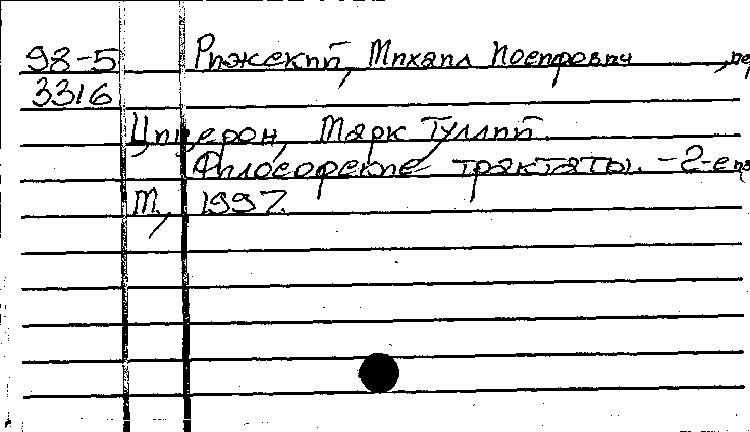 98-5 Рижский, Михаил Иосифович, пер
3316
Цицерон, Марк Туллий.
Философские трактаты. - 2-е из
М, 1997.